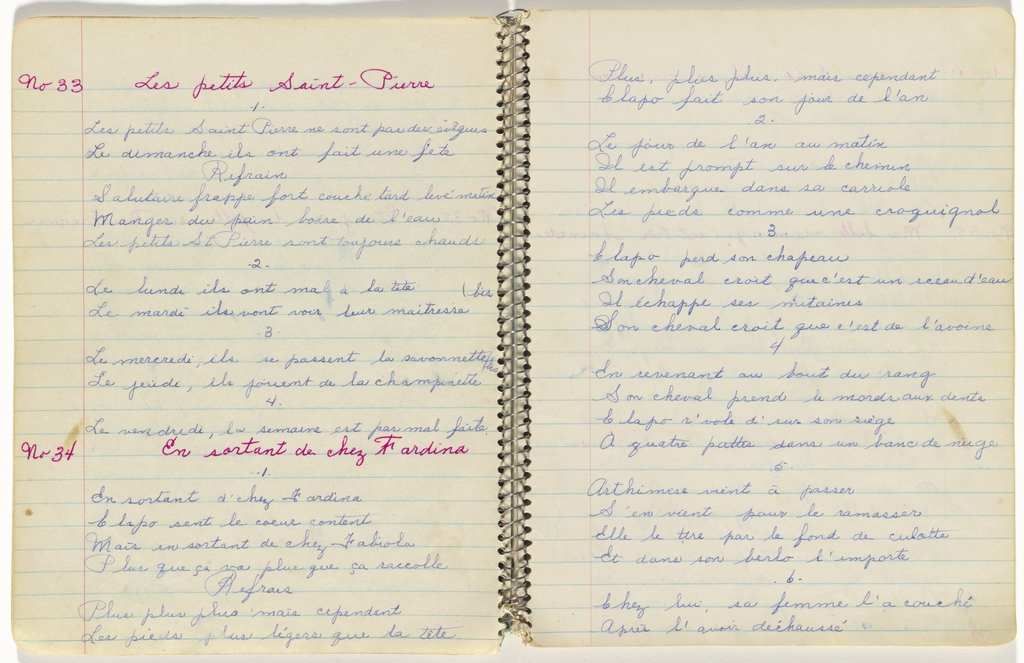 No 33 Les petits Saint-Pierre
1.
Les petits Saint Pierre ne sont pas des évêques
Le dimanche ils ont fait une fête
Refrain
Salutaire frappe fort couche tard levé matin
Manger du pain boire de l'eau
Les petits St Pierre sont toujours chauds
2.
Le lundi ils ont mal à la tête (bis
Le mardi ils vont voir leur maitresse
3.
Le mercredi, ils se passent la savonnette
Le jeudi, ils jouent de la champinette
4.
Le vendredi, la semaine est pas mal faite.
No 34 En sortant de chez Fardina
1.
En sortant d'chez Fardina
Elapo sent le coeur content
Mais en sortant de chez Fabiola
Plus que ça va plus que ça raccolle
Refrais
Plus plus plus mais cependent
Les pieds plus légers que la tête
Plus, plus plus, mais cependant
Elapo fait son jour de l'an
2.
Le jour de l'an au matin
Il est prompt sur le chemin
Il embarque dans sa carriole
Les pieds comme une croquignol
3.
Elapo perd son chapeau
Son cheval croit que c'est un sceau d'eau
Il échappe ses mitaines
Son cheval croit que c'est de l'avoine
4
En revenant au bout du rang
Son cheval prend le mords aux dents
Elapo r'vole d'sur son siège
A quatre pattes dans un banc de neige
5.
Arthimise vient à passer
S'en vient pour le ramasser
Elle le tire par le fond de culotte
Et dans son berlo l'emporte
6.
Chez lui, sa femme l'a couché
Après l'avoir déchaussé